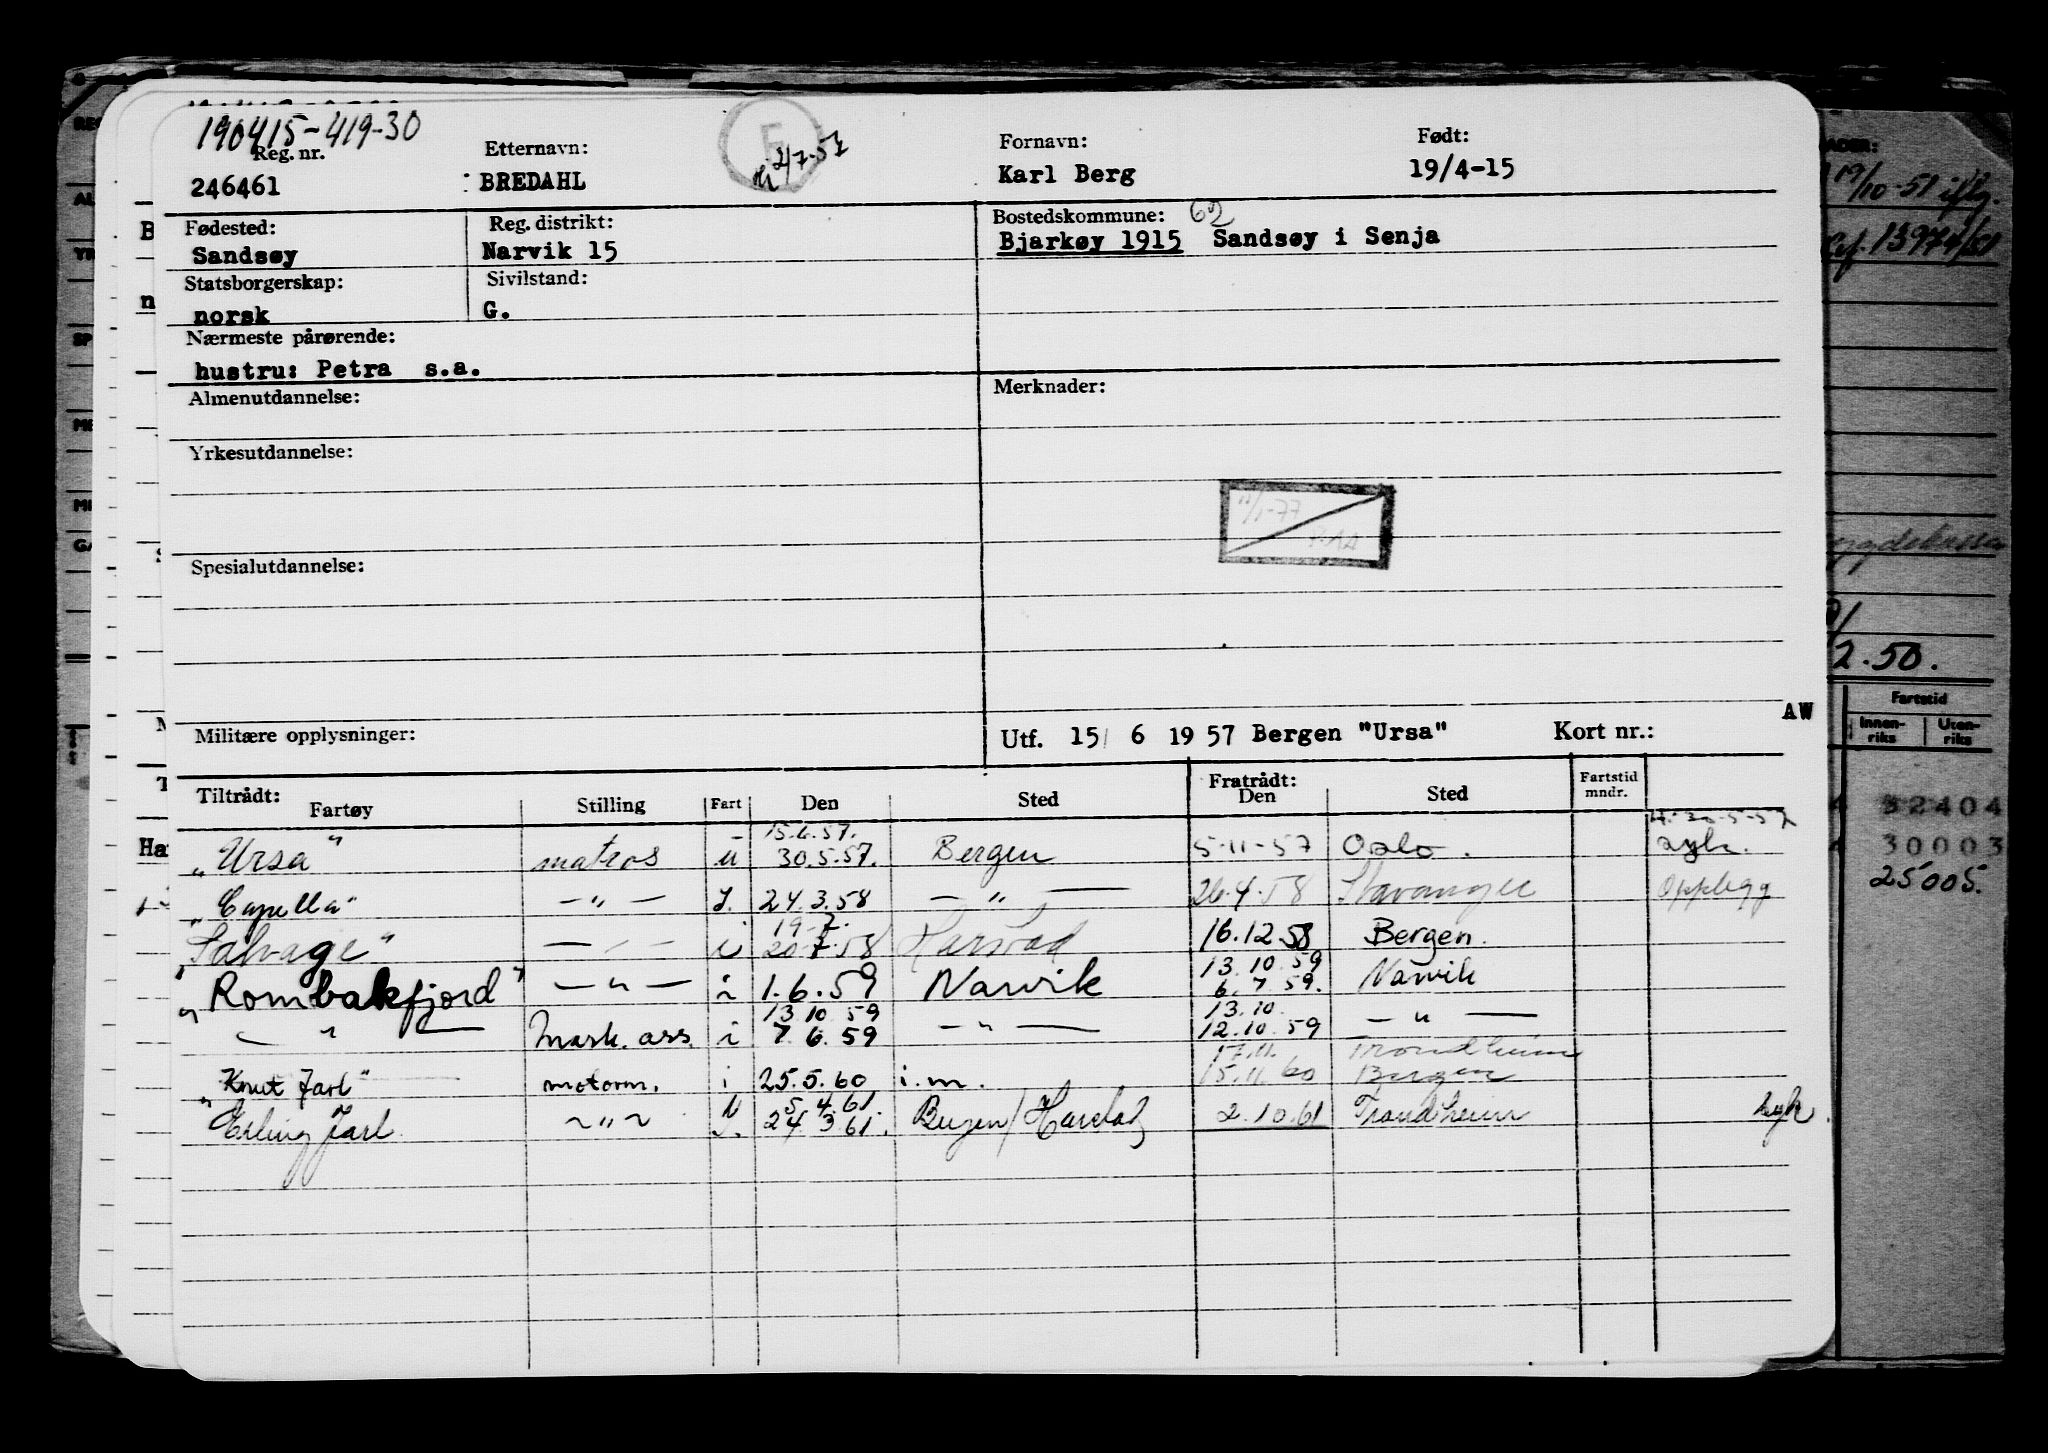 190415-419-30
Reg. nr. Etternavn: Fornavn: Født:
246461 BREDAHL 2/7-57 Karl Berg 19/4-15
Fødested: Reg. distrikt: Bostedskommune: 62
Sandsøy Narvik 15 Bjarkøy 1915 Sandsøy i Senja
Statsborgerskap: Sivilstand:
norsk G.
Nærmeste pårørende:
hustru: Petra s.a.
Almenutdannelse: Merknader:
Yrkesutdannelse:
11/1-77
Spesialutdannelse:
AW
Militære opplysninger: Utf. 15/ 6 19 57 Bergen "Ursa" Kort nr.:
Tiltrådt: Fratrådt: Fartstid mndr.
Fartøy Stilling Fart Den Sted Den Sted
15.6.57. 30-5-57
"Ursa" matros u 30.5.57. Bergen 5-11-57 Oslo. syk.
"Capella" — " — I. 24.3.58 — " — 26.4.58 Stavanger Opplegg
19-7.
"Salvage" — " — i 20.7.58 Harstad 16.12.58 Bergen.
13.10.59
"Rombakfjord" — " — i 1.6.59 Narvik 6.7.59. Narvik
13.10.59 13.10.
— " — Mask. ass. i 7.6.59 — " — 12.10.59 — " —
17.11. Trondheim
"Knut Jarl" motorm. i 25.5.60 i.m. 15.11.60 Bergen
5.4.61
Erling Jarl ~ " ~ 24.3.61. Bergen/Harstad 2.10.61 Trondheim syk.
19/10-51
13974/51
2.50.
Fartstid
Innenriks Utenriks
32404
30003
25005.